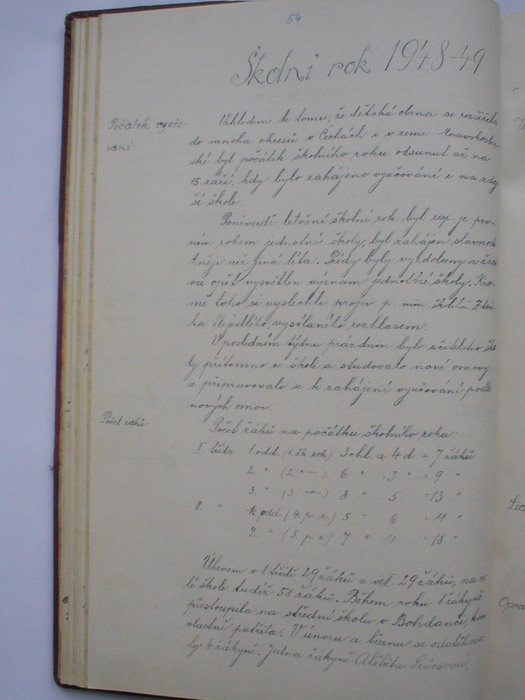 54
Školní rok 1948-49
Počátek vyučo-
vání
Vzhledem k tomu, že dětská obrna se rozšířila
do mnoha okresů v Čechách i v zemi Moravskoslez-
ské byl počátek školního roku odsunut až na
15. září, kdy bylo zahájeno vyučování i na zdej-
ší škole.
Poněvadž letošní školní rok byl resp. je prv-
ním rokem jednotné školy, byl zahájen slavnost-
něji než jiná léta. Třídy byly vyzdobeny a žactvu
opět vysvětlen význam jednotné školy. Kro-
mě toho se vyslechli projev p. min. školství Zdeň-
ka Nejedlého, vysílaného rozhlasem.
V posledním týdnu prázdnin bylo učitelstvo ško-
ly přítomno ve škole a studovalo nové osnovy
a připravovalo se k zahájení vyučování podle
nových osnov.
Počet žáků
Počet žáků na počátku školního roku:
I. třída 1. odd. (1. šk. rok) 3 chl. a 4 d. = 7 žáků
2. " (2. —"—) 6 " 3 " = 9 "
3. " (3. —"—) 8 " 5 " = 13 "
II. " 1. odd. (4. p. r.) 5 " 6 " = 11 "
2. " (5. p. r.) 7 " 11 " = 18 "
Úhrnem v I. třídě 29 žáků a ve II. 29 žáků, na
škole tudíž 58 žáků. Během roku 1 žákyně
přestoupila na střední školu v Bohdanči, kam
vlastně patřila. V únoru a březnu se odstěhova-
ly 4 žákyně. Jedna žákyně Alžběta